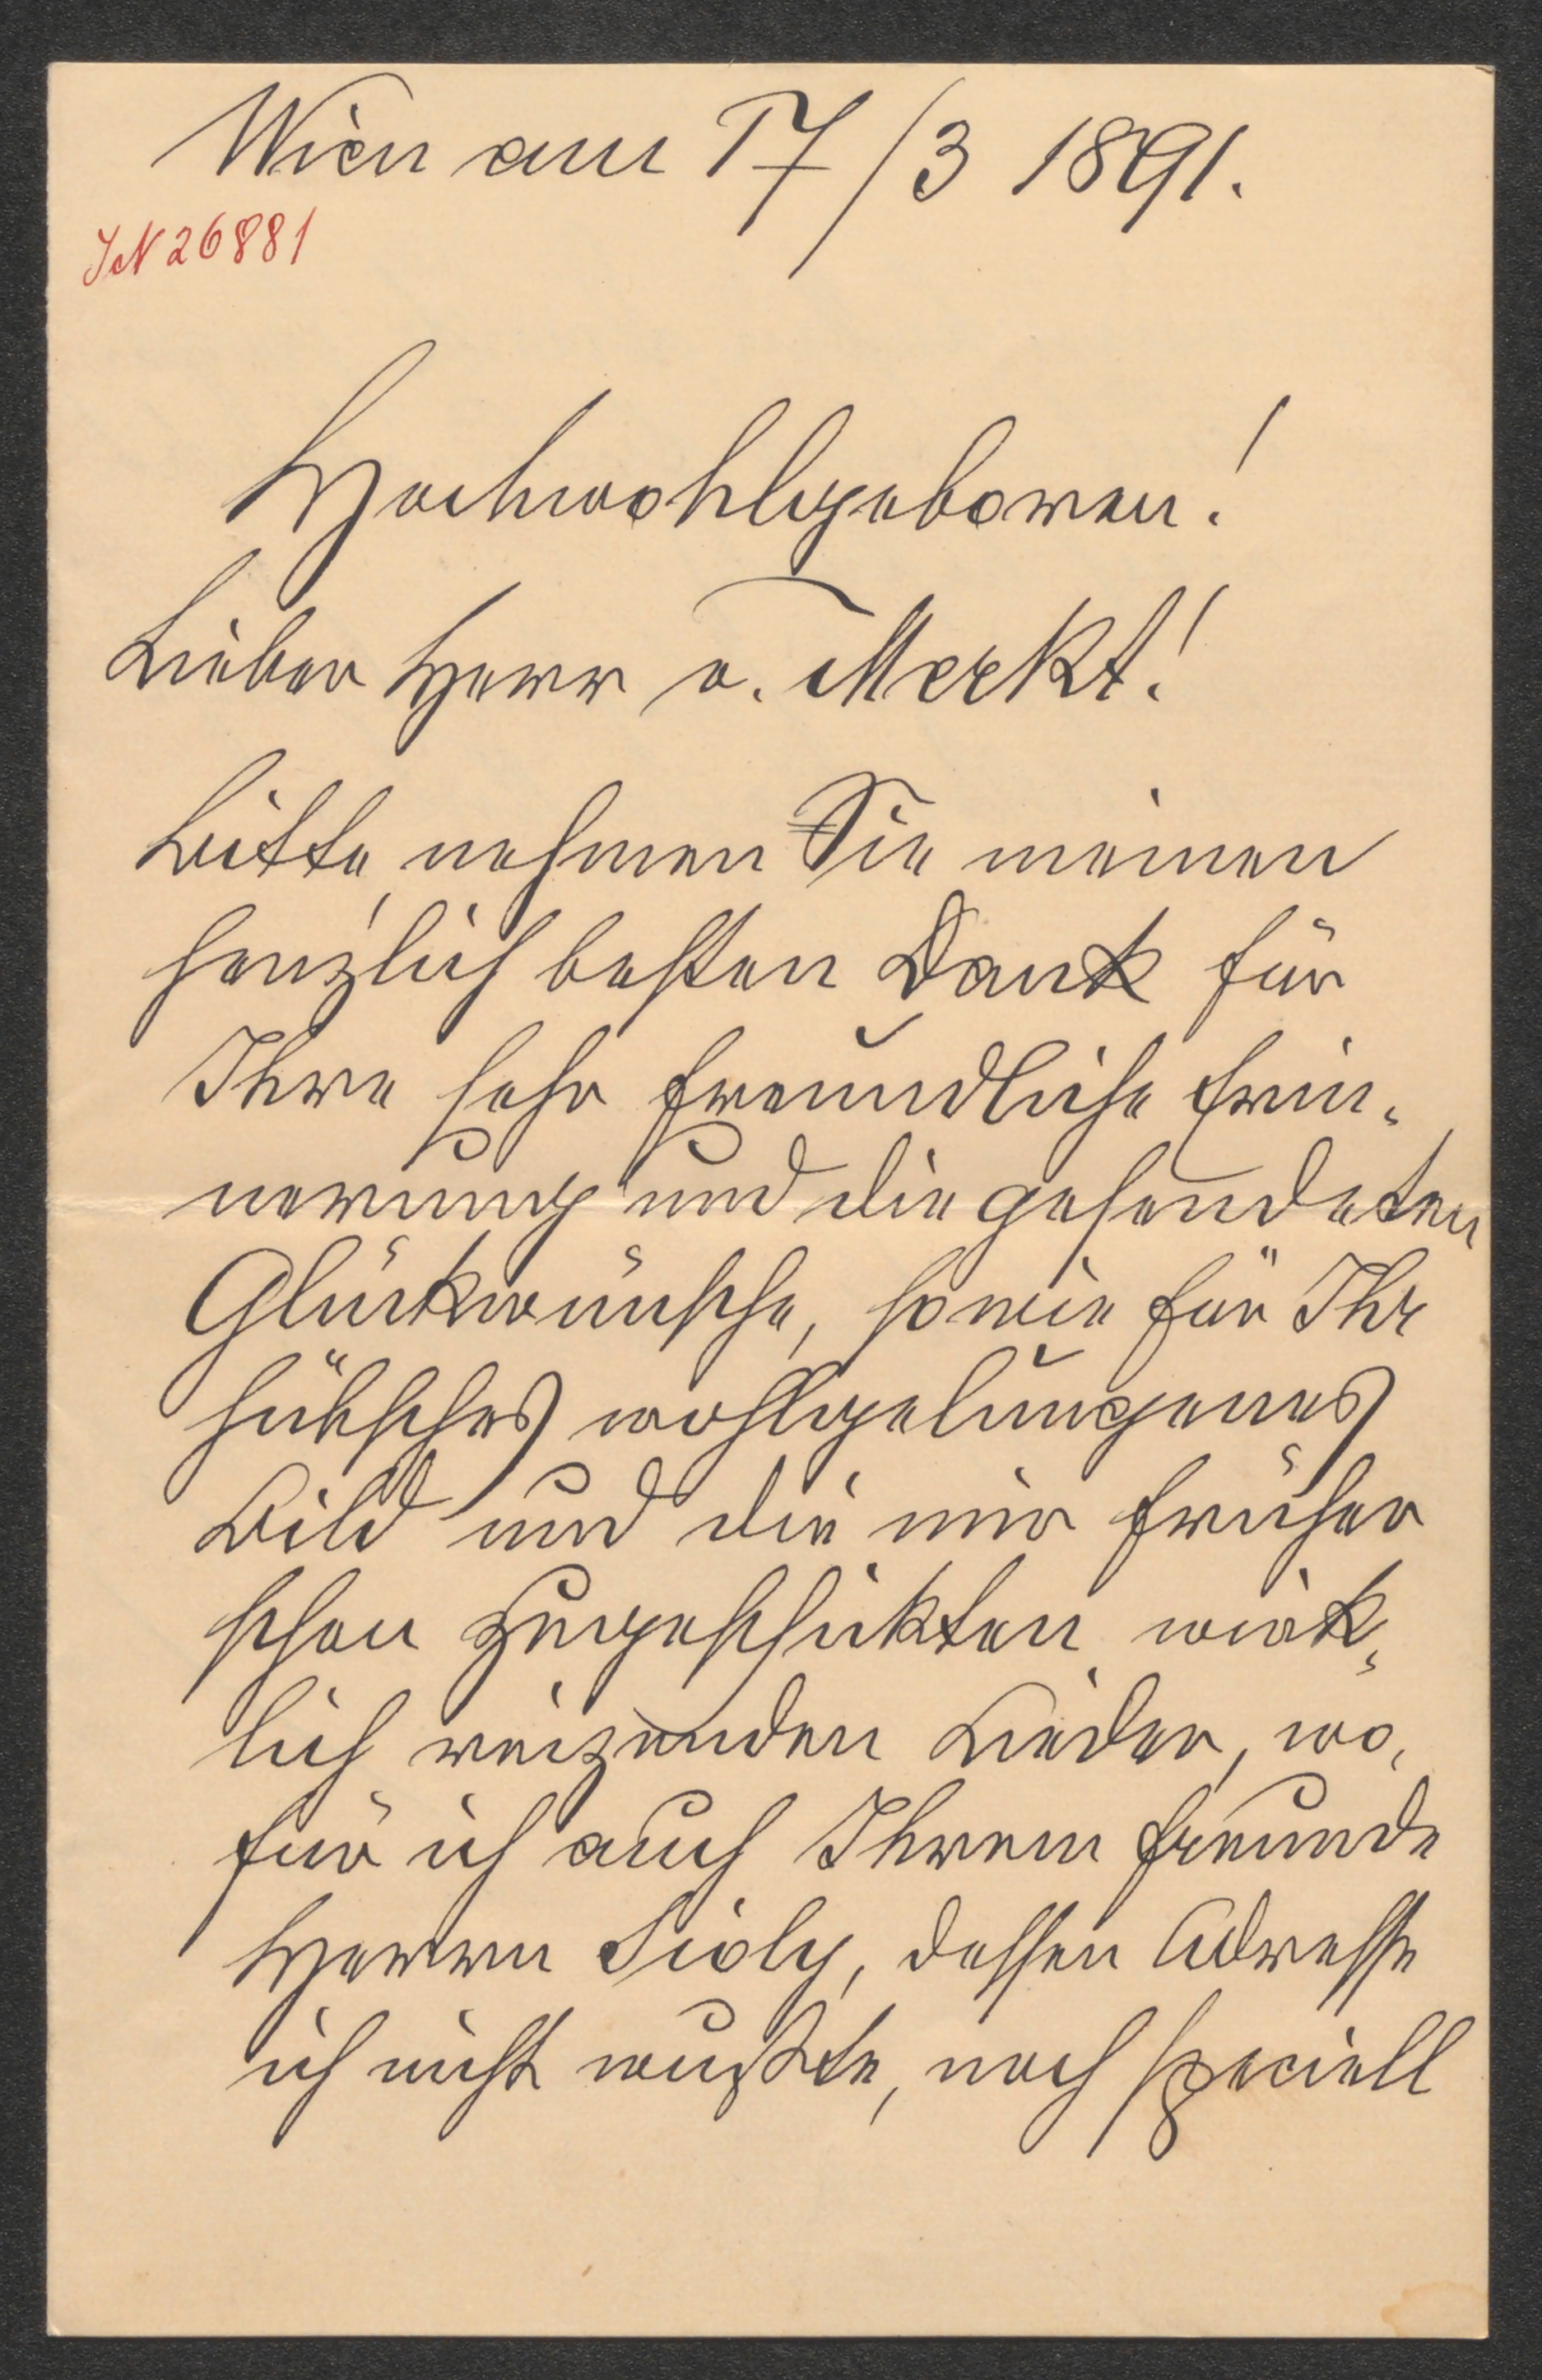 Wien am 17/3 1891.
IN 26881
Hochwohlgeboren!
Lieber Herr v. Merkt!
Bitte, nehmen Sie meinen
herzlich besten Dank für
Ihre sehr freundliche Erin-
nerung und die gesendeten
Glückwünsche, sowie für Ihr
hübsches wohlgelungenes
Bild und die mir früher
schon zugeschickten wirk-
lich reizenden Lieder, wo-
für ich auch Ihrem Freunde
Herrn Sioly, dessen Adresse
ich nicht wußte, noch speciell